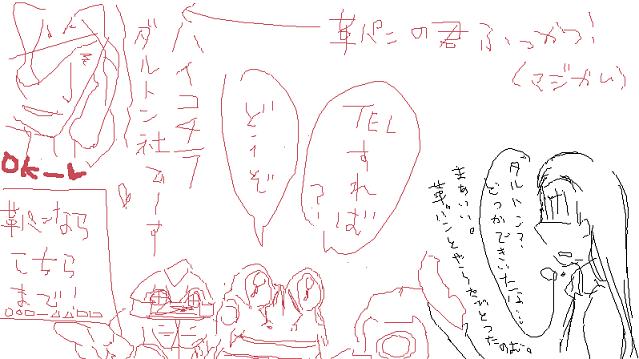 革パンの君ふっかつ!
(マジかい)
ハイコチラ
ダルトン社でーす
どーぞ
TELすれば?
OK－レ
革パンなら
こちら
まで!
ダルトン?
どっかできいたな…
まぁいい。
革パンとやらをがとったのむ。